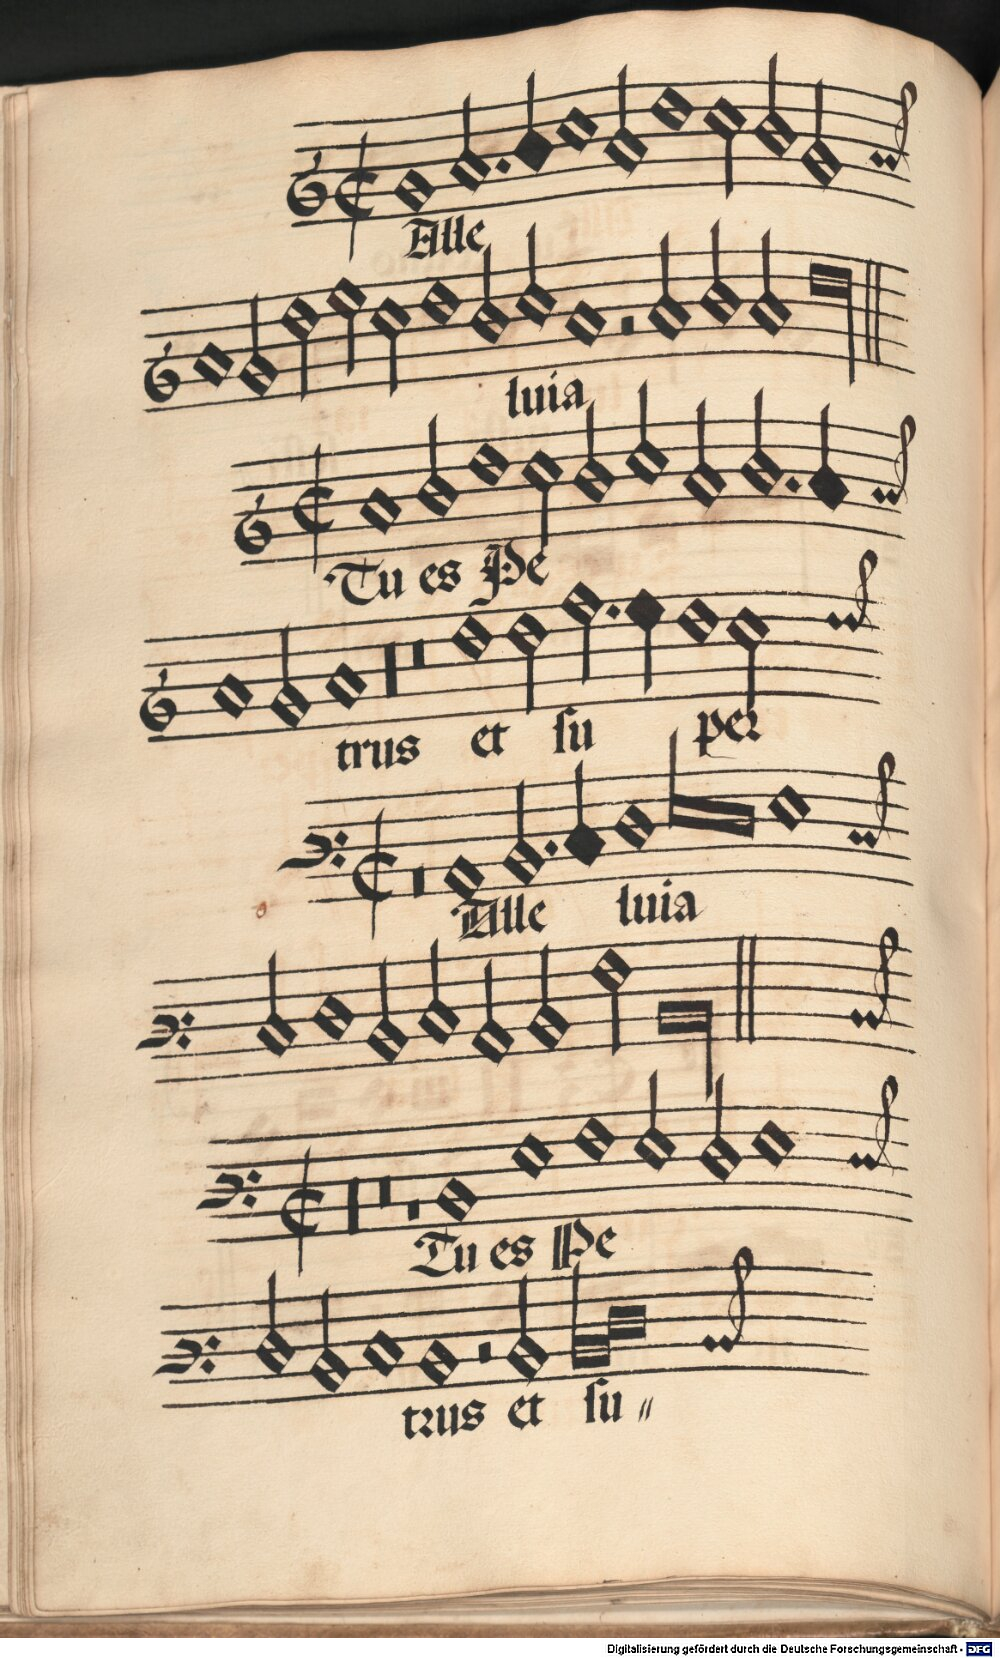 Alle
luia
Tu es Pe
trus et su per
Alle luia
Tu es Pe
trus et su〃
Digitalisierung gefördert durch die Deutsche Forschungsgemeinschaft - DFG